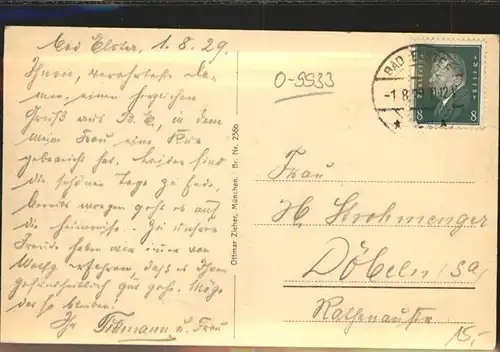 Bad Elster, 1.8.29.
Ihnen, verehrteste Da-
men, einen herzlichen
Gruß aus B.E., in dem
mein Frau eine Kur
gebraucht hat. Leider sind
die schönen Tage zu Ende,
bereits morgen geht es auf
die Heimreise. Zu unserer
Freude haben wir von
erfahren, dass es Ihnen
gesundheitlich gut geht. Möge
das so bleiben!
Ihr Tittmann u. Frau
Ottmar Zieher, München. Br. Nr. 236b
O-9933
BAD ELSTER
-1.8.29.
8 8
Frau
H. Strohmenger
Döbeln/Sa/
Rathenaustr
15,-